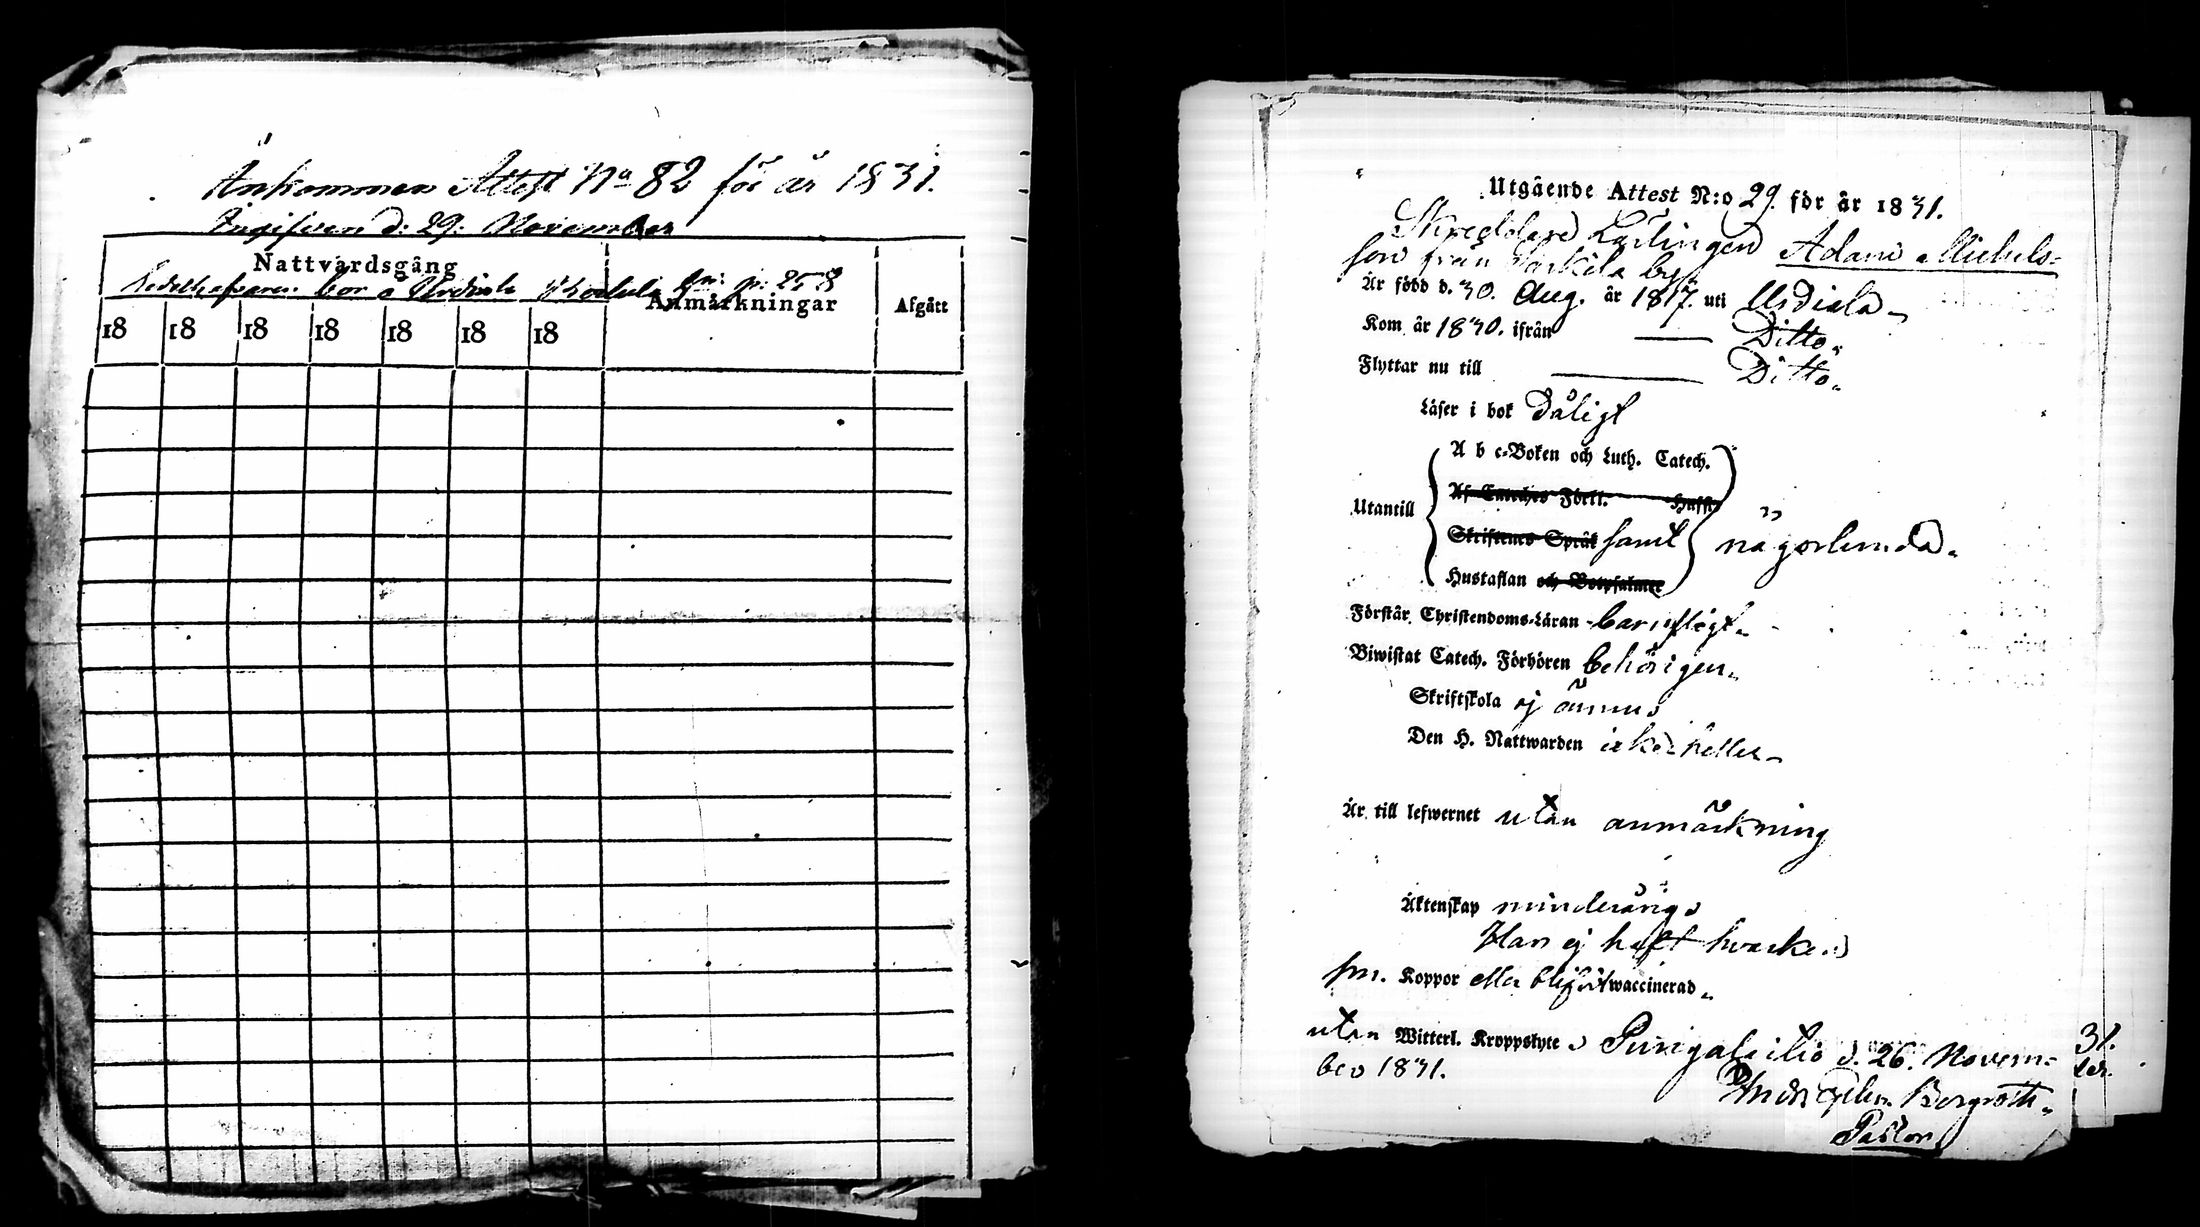 Ankommen Attest No 82 för år 1831.
Ingifven d: 29: November
Nattvardsgång
bor å Urdiala
pag. 258
Anmärkningar
Afgått
18 18 18 18 18 18 18
Utgående Attest N:o 29. för år 1831.
Skreddare Lärlingen Adam Michels-
son från by
Är född d. 30. Aug. år 1817. uti Urdiala
Kom år 1830. ifrån — Ditto.
Flyttar nu till — Ditto.
Läser i bok dåligt
A b c-Boken och Luth. Catech.
Af Catechos Förkl. Hufst.
Utantill
Skriftenes Språk samt någorlunda.
Hustaflan och Botpsalmer
Förstår Christendoms-Läran barnsligt.
Biwistat Catech. Förhören behörigen.
Skriftskola ej ännu
Den H. Nattwarden icke heller
Är till lefwernet utan anmärkning
Äktenskap minderårig
Har ej haft hvarken
sm. Koppor eller blifvit waccinerad.
utan Witterl. Kroppslyte Punigalaitio d. 26. Novem-
ber 1831.
31.
ber.
Bergroth.
Pastor